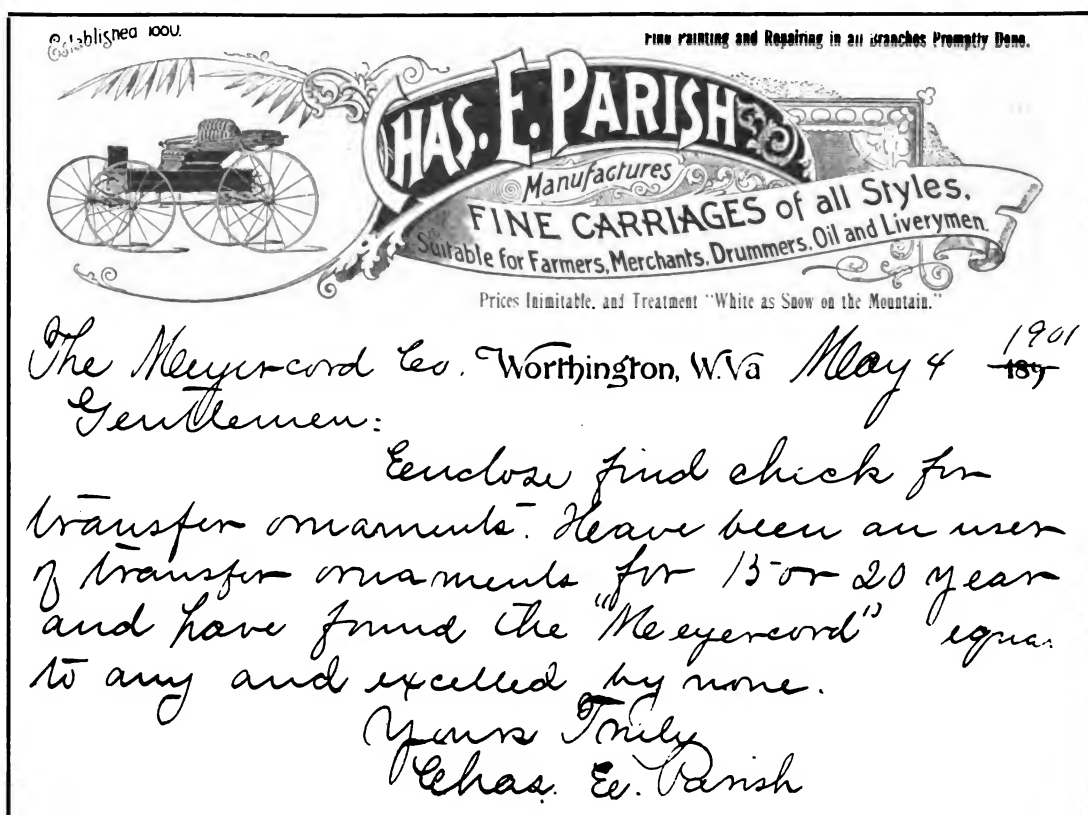 Established
Fine Painting and Repairing in all Branches Promptly Done.
CHAS. E. PARISH
Manufactures
FINE CARRIAGES of all Styles.
Suitable for Farmers, Merchants, Drummers, Oil and Liverymen.
Prices Inimitable, and Treatment "White as Snow on the Mountain."
The Meyercord Co. Worthington, W.Va May 4 1901
189
Gentlemen:
Enclose find check for
transfer ornaments. Have been an user
of transfer ornaments for 15 or 20 year
and have found the "Meyercord" equa
to any and excelled by none.
Yours Truly
Chas. E. Parish